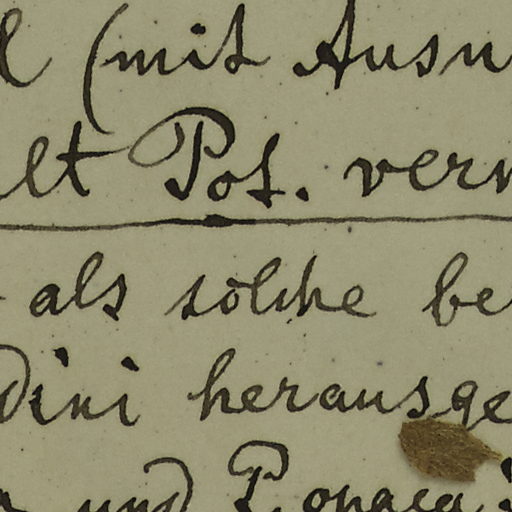 l (mit Ausn
lt Pos. verw
als solche be
dini herausge
und P.